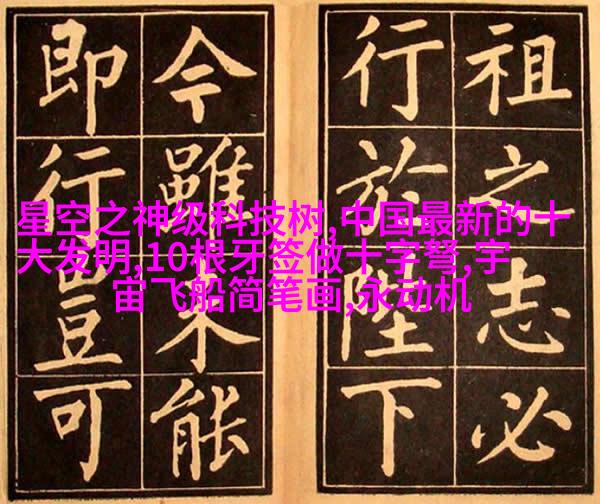 祖之志必
行於陛下
今雖未能
即行豈可
星空之神级科技树,中国最新的十
大发明,10根牙签做十字弩,宇
宙飞船简笔画,永动机